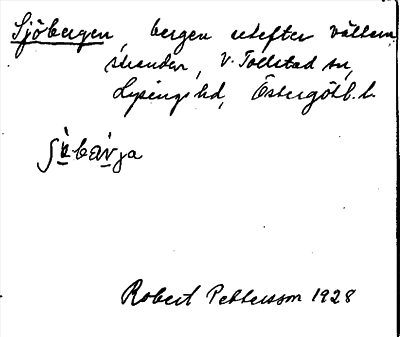 Sjöbergen, bergen utefter vättern
stranden, V. Tollstad sn,
Lysings hd, Östergötl. l.
Robert Pettersson 1928